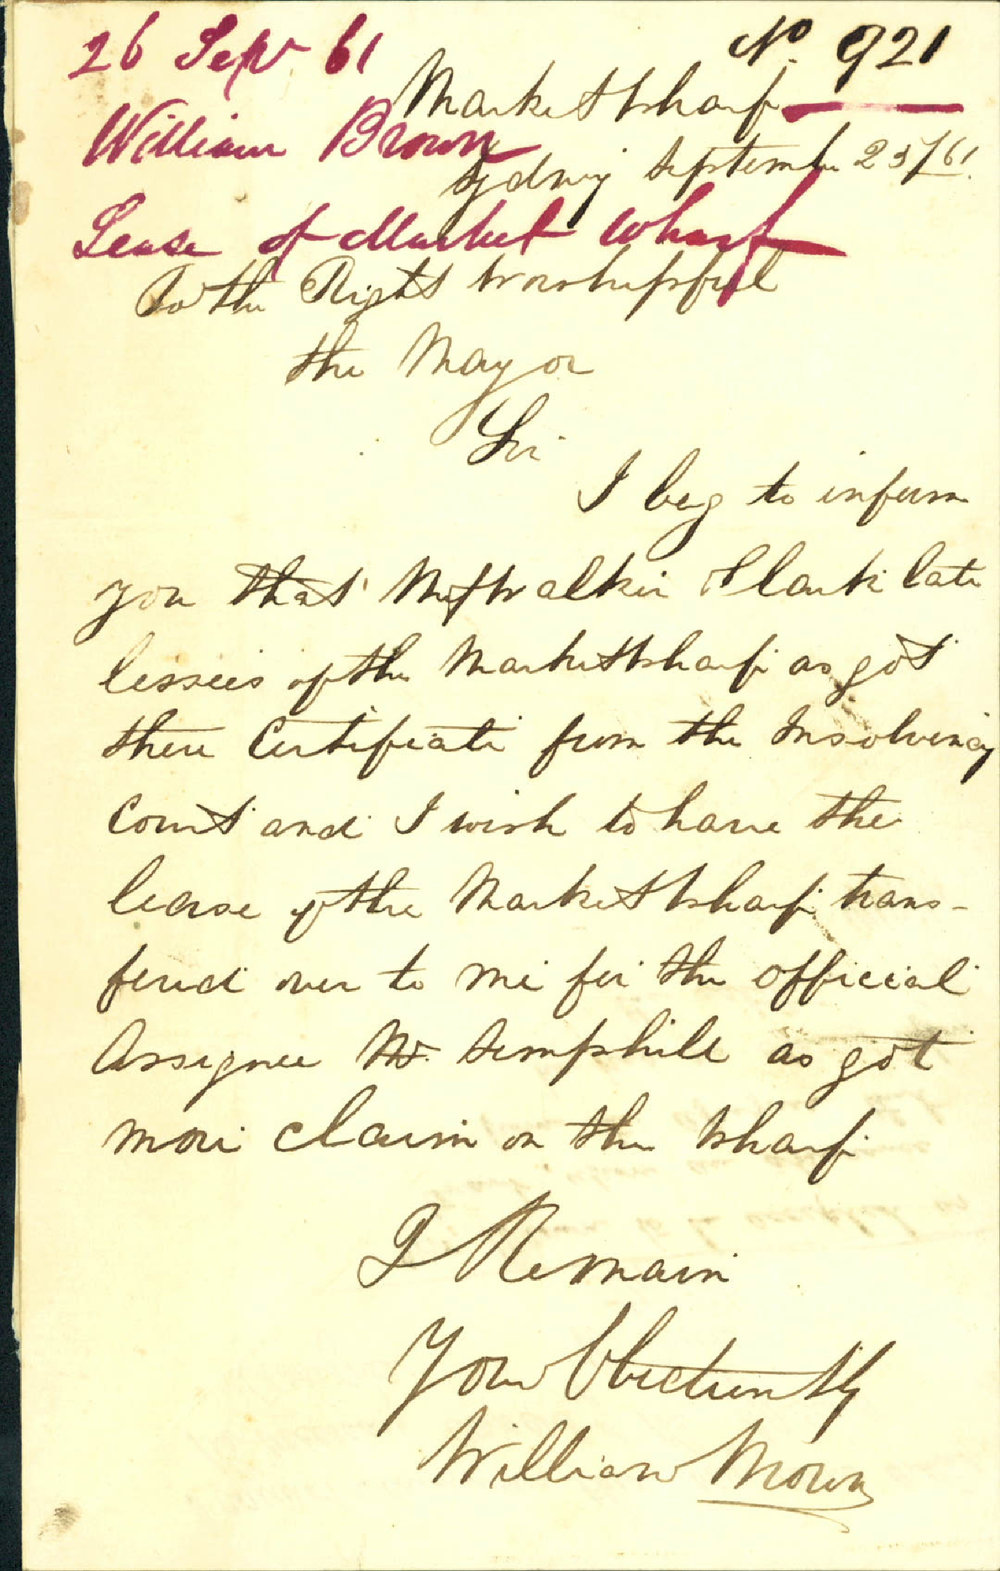 26 Sepr 61
No. 921
Market Wharf
William Brown
Sydney September 25/61.
Lease of Market Wharf
To the Right Worshipful
the Mayor
Sir
I beg to inform
you that Walker & Clark late
lessees of the Market Wharf as got
there Certificate from the Insolvency
Court and I wish to have the
lease of the Market Wharf trans-
fered over to me for the official
Assignee Mr. Semphill as got
more claim on the Wharf
I Remain
Your Obediently
William Brown